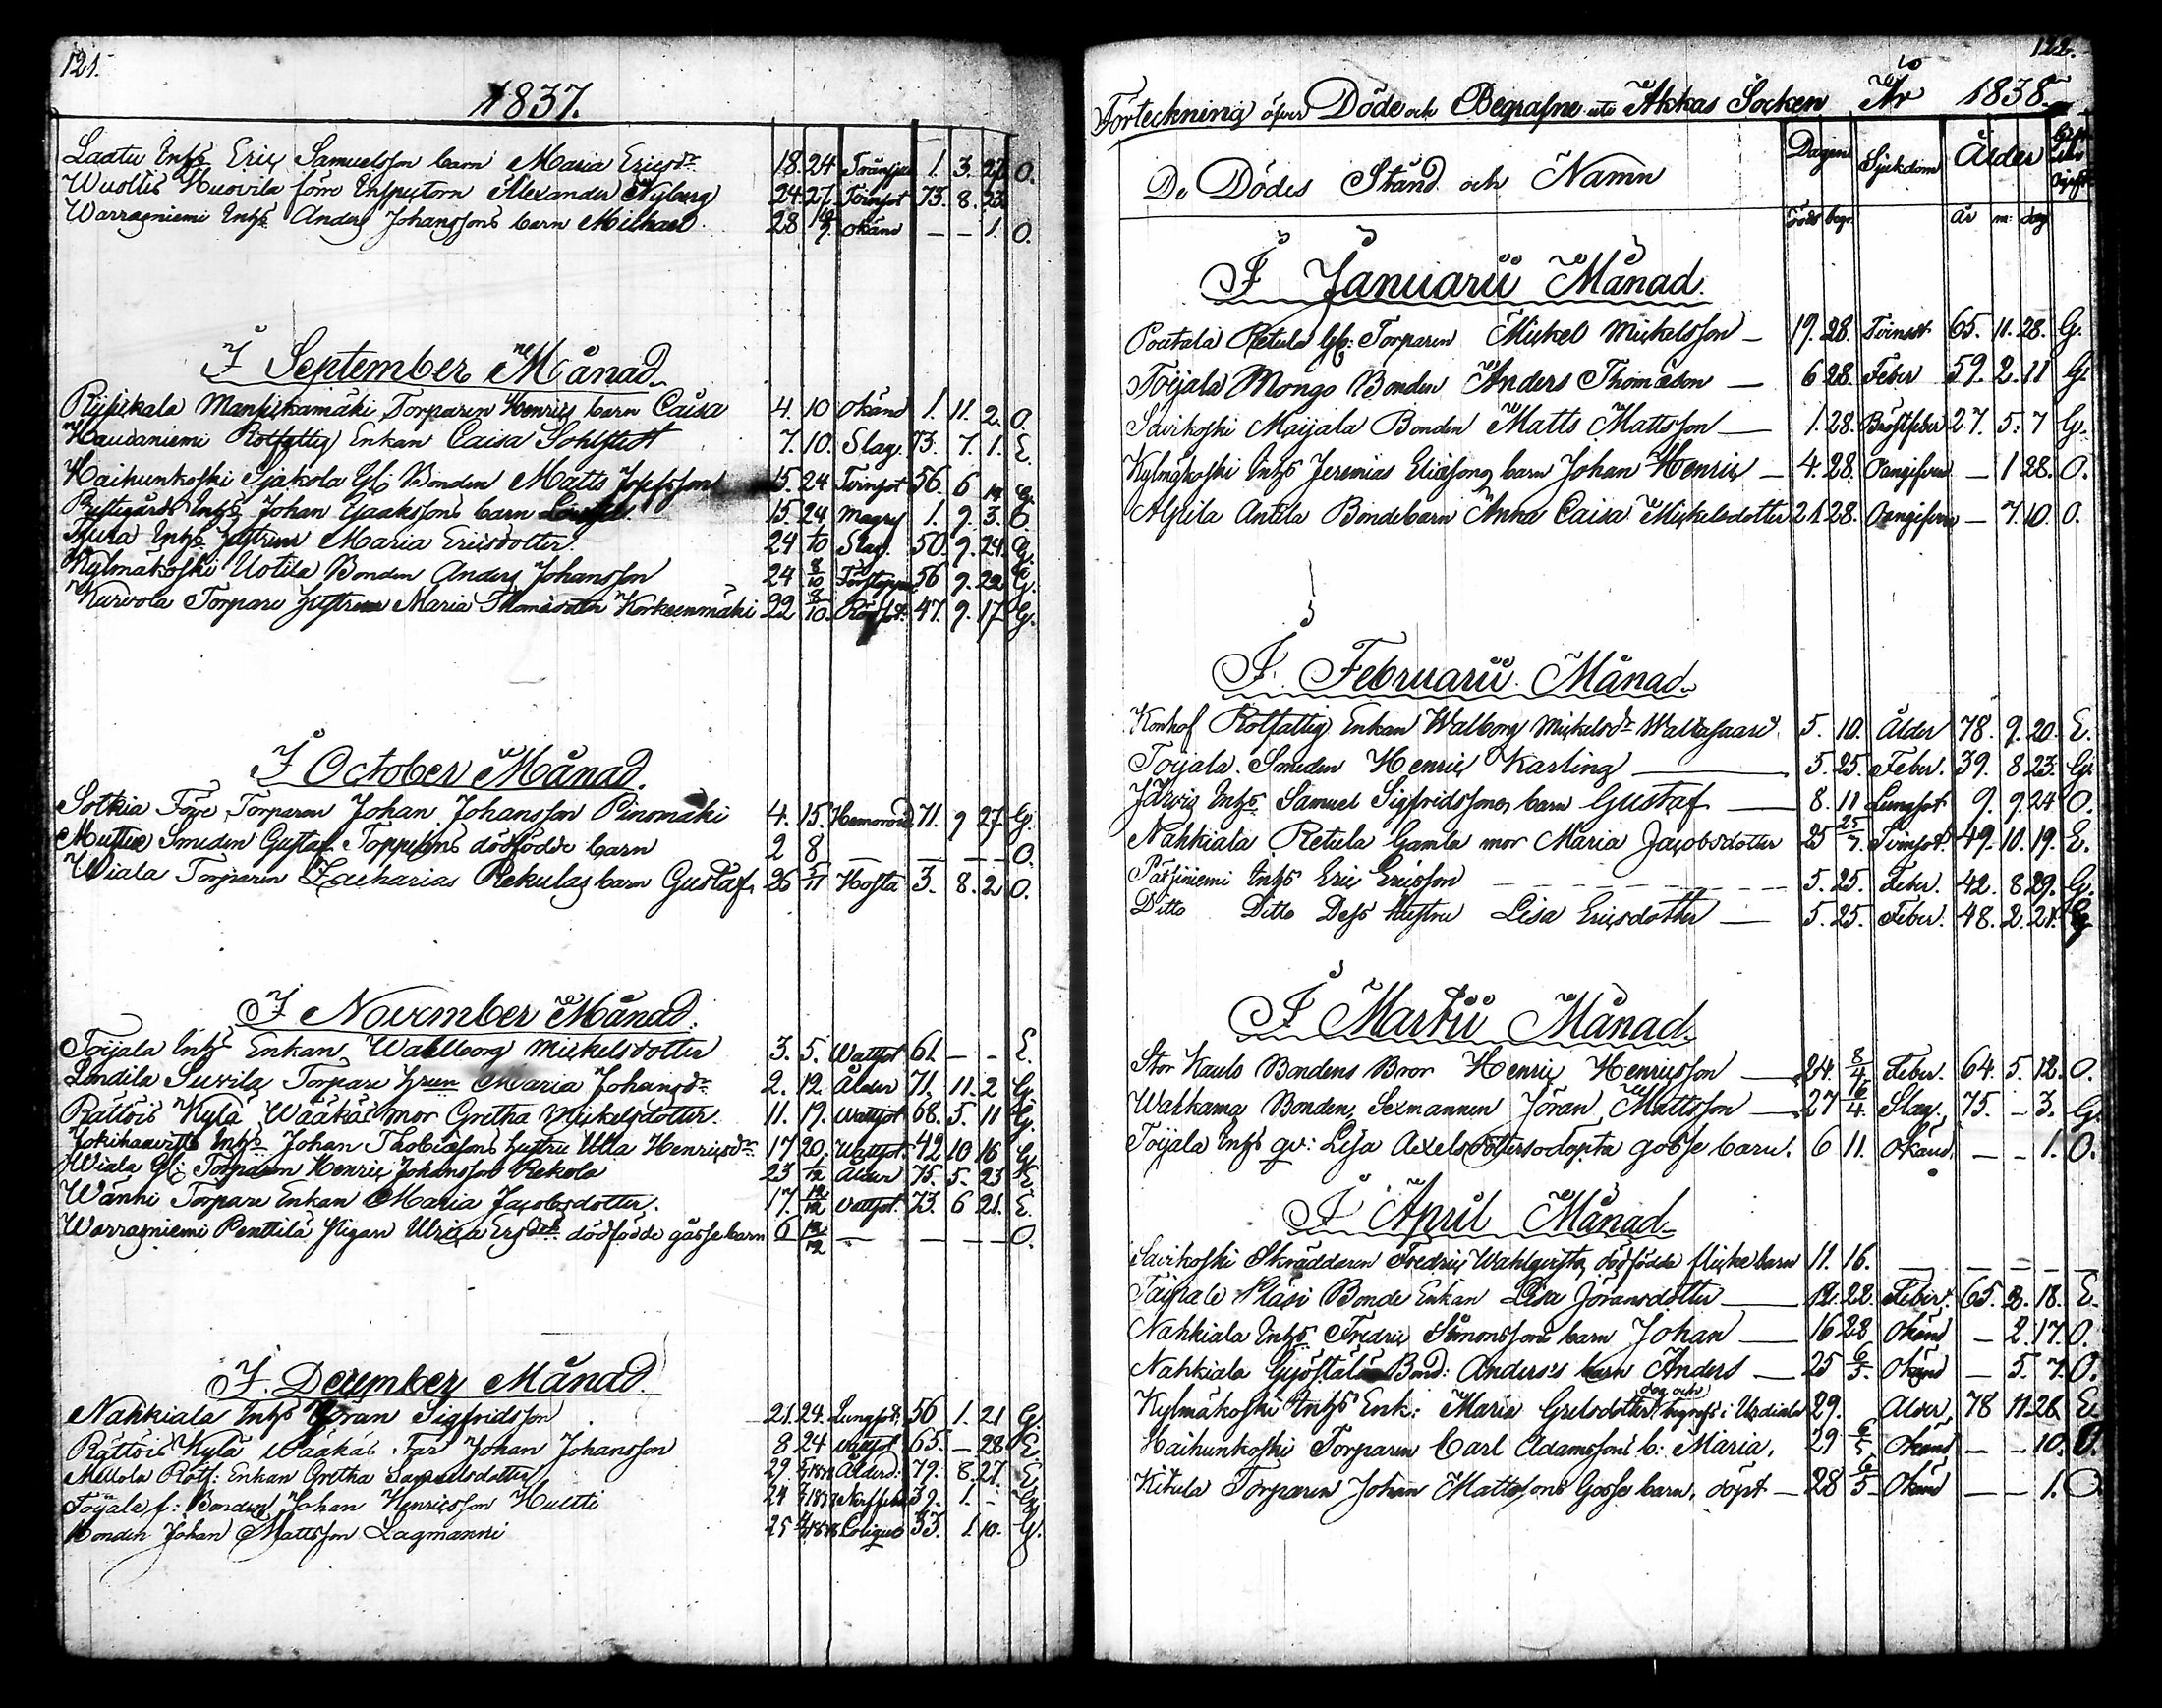 121.
1837.
Laatu Inhs Eric Samuelsson barn Maria Ericsdr 18. 24 1. 3. 27 O.
Wuoltis Huovila förre Inspectorn Alexander Nyberg 24. 27. Tvinsot 73. 8. 23.
Warrasniemi Inhs Anders Johanssons barn Michael 28 okänd — — 1. O.
I September Månad.
Torparen Henrics barn Caisa 4. 10 okänd 1. 11. 2. O.
Haudaniemi Rotfattig Enkan Caisa Sohlstedt 7. 10. Slag. 73. 7. 1. E.
Haihunkoski Sjäkola Gl: Bonden Matts Josefsson 15. 24 Tvinsot 56. 6 14 G.
Inhs Johan Isaakssons barn 15. 24. Magrs 1. 9. 3. O.
Inhs Hustrun Maria Ericsdotter. 24 Slag. 50. 9. 24. G.
Kylmäkoski Uotila Bonden Anders Johansson 24 8/10 56 9. 22 G.
Kurvola Torpare Hustrun Maria Thomasdotter Korkeenmäki 22 8/10. Rödsot. 47. 9. 17 G.
I October Månad.
Sotkia Torparen Johan Johansson Pinomäki 4. 15. 71. 9 27. G.
Smeden Gustaf Toppelins dödfödde barn 2 8 — — — — O.
Wiala Torparen Zacharias Rekolas barn Gustaf. 26 5/11 Hosta 3. 8. 2 O.
I November Månad.
Toijala Inhs Enkan Wahlborg Mickelsdotter 3. 5. Wattsot 61. — — E.
Suvila Torpare Hrun Maria Johansdr 2. 12. Ålder 71. 11. 2 G.
Rättöis Kylä Wääkäs mor Gretha Mickelsdotter. 11. 19. Wattsot 68. 5. 11 G.
Inhs Johan Thobiassons hustru Ulla Henricsdr 17 20. Wattsot. 42 10 16 G.
Wiala Gl: Torparen Henric Johansson Rekola 23 1/12 Ålder 75. 5. 23 E.
Wänni Torpare Enkan Maria Jacobsdotter. 17. 12/12 Wattsot. 73. 6 21. E.
Warrasniemi Penttilä Pigan Ulrica dödfödde gosse barn 6 12/12 — — — — O.
I December Månad.
Nahkiala Inhs Göran Sigfridsson 21. 24. Lungsot. 56 1. 21 G.
Rättöis Kylä Wääkäs Far Johan Johansson 8 24 Wattsot 65. — 28 E.
Mellola Rotf: Enkan Gretha Samuelsdotter 29 Ålderd. 79. 8. 27. E.
Toijala f: Bonden Johan Henricsson Huitti 24 59. 1. -
Bonden Johan Mattsson Lagmanni 25 Colique 53. 1. 10. G.
122.
Förteckning öfver Döde och Begrafne uti Akkas Socken År 1838.
De Dödes Stånd och Namn Dagen Sjukdom Ålder
död begr. år m: dag
I Januarii Månad.
Poutala Retula Gl: Torparen Mickel Mickelsson — 19. 28. Tvinsot 65. 11. 28. G.
Toijala Mongo Bonden Anders Thomasson — 6 28. Feber 59. 2. 11 G.
Savikoski Maijala Bonden Matts Mattsson — 1. 28. Bröstfeber 27. 5. 7 G.
Kylmäkoski Inhs Jeremias Eliassons barn Johan Henric — 4. 28. Oangifven — 1 28. O.
Antila Bondebarn Anna Caisa Mickelsdotter 21. 28. Oangifven — 7. 10. O.
I Februarii Månad.
Konhof Rotfattig Enkan Walborg Mickelsdr Waltasaari. 5. 10. Ålder 78. 9. 20. E.
Toijala Smeden Henric Karling — 5. 25. Feber. 39. 8 23. G.
Järvis Inhs Samuel Sigfridssons barn Gustaf — 8. 11 Lungsot 9. 9. 24 O.
Nahkiala Retula Gamla mor Maria Jacobsdotter 25 25/7. Tvinsot. 49. 10. 19. E.
Inhs Eric Ericsson — 5. 25. Feber. 42. 8 29. G.
Ditto Ditto Dess hustru Lisa Ericsdotter — 5. 25. Feber. 48. 2. 21. G
I Martii Månad.
Stor Kauls Bondens Bror Henric Henricsson — 24. 8/4 Feber. 64. 5. 12. O.
Wahkama Bonden Sexmannen Jöran Mattsson — 27 16/4. Slag. 75. — 3. G.
Toijala Inhs qv: Lisa Axelsdotters odöpta gosse barn. 6 11. Okänd — — 1. O.
I April Månad.
Savikoski Skräddaren Fredric Wahlqvists dödfödda flicke barn 11. 16. — — — —
Bonde Enkan Lisa Jöransdotter — 12. 22. Feber. 65. 2. 18. E.
Nahkiala Inhs Fredric Simonssons barn Johan — 16 28 Okänd — 2. 17. O.
Nahkiala Bond: Anders's barn Anders — 25 6/5. Okänd — 5. 7. O.
Kylmäkoski Inhs Enk: Maria Grelsdotter dog och begrafs i Urdiala 29. Ålder, 78 11 28 E.
Haihunkoski Torparen Carl Adamssons b: Maria. 29 6/5 Okänd — — 10. O.
Kitula Torparen Johan Mattssons Gosse barn, döpt — 28 6/5 Okänd — — 1. O.